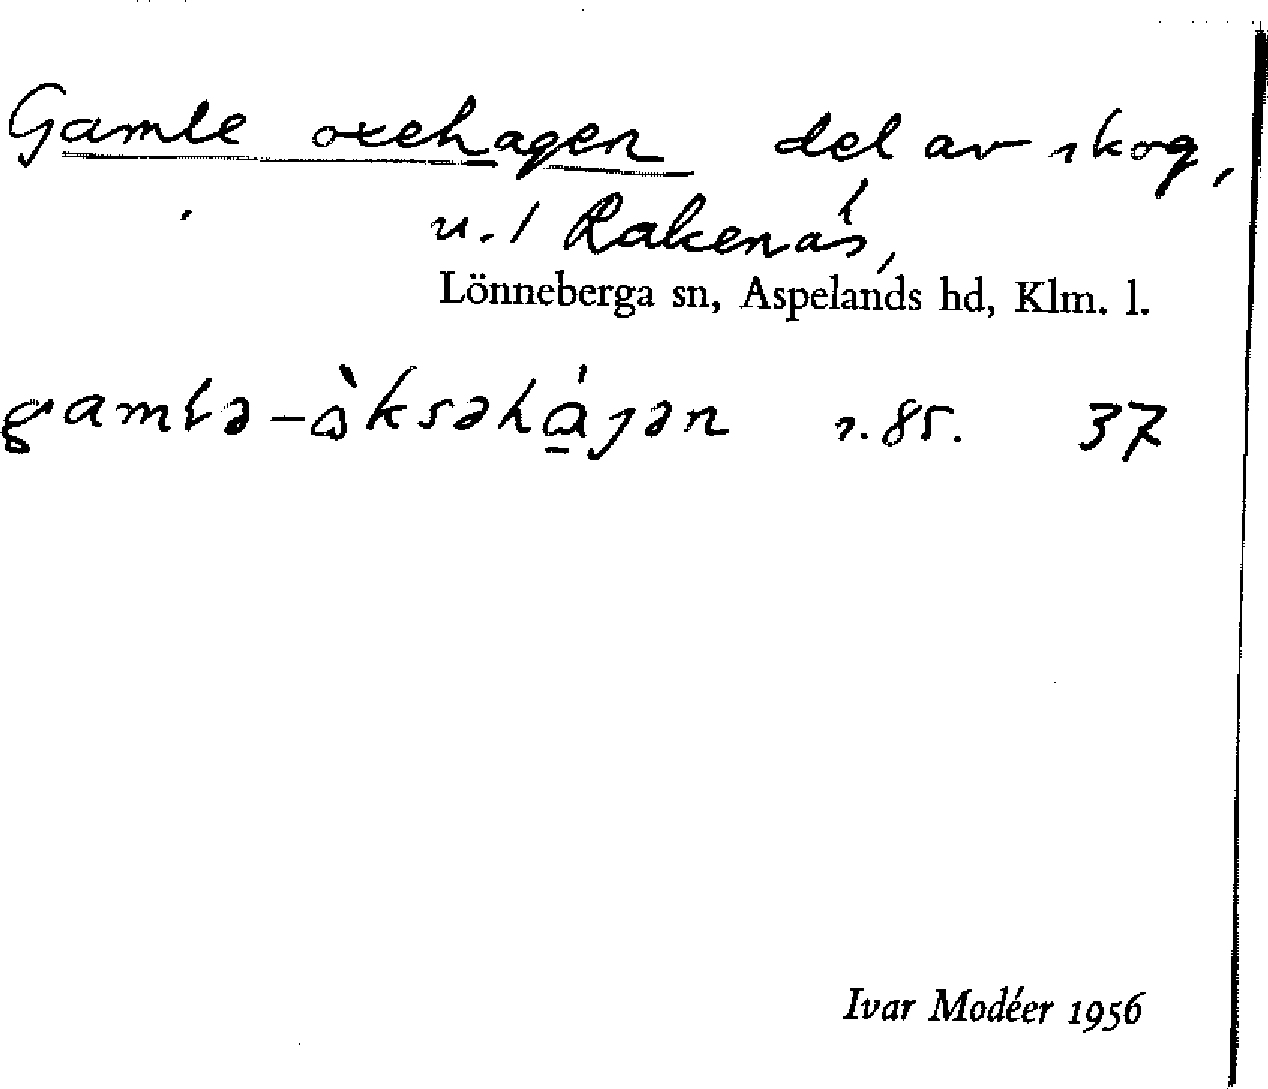 Gamle oxehagen del av skog,
u. 1 Rakenäs,
Lönneberga sn, Aspelands hd, Klm. l.
gamlə-åksəhájən s. 85. 37
Ivar Modéer 1956